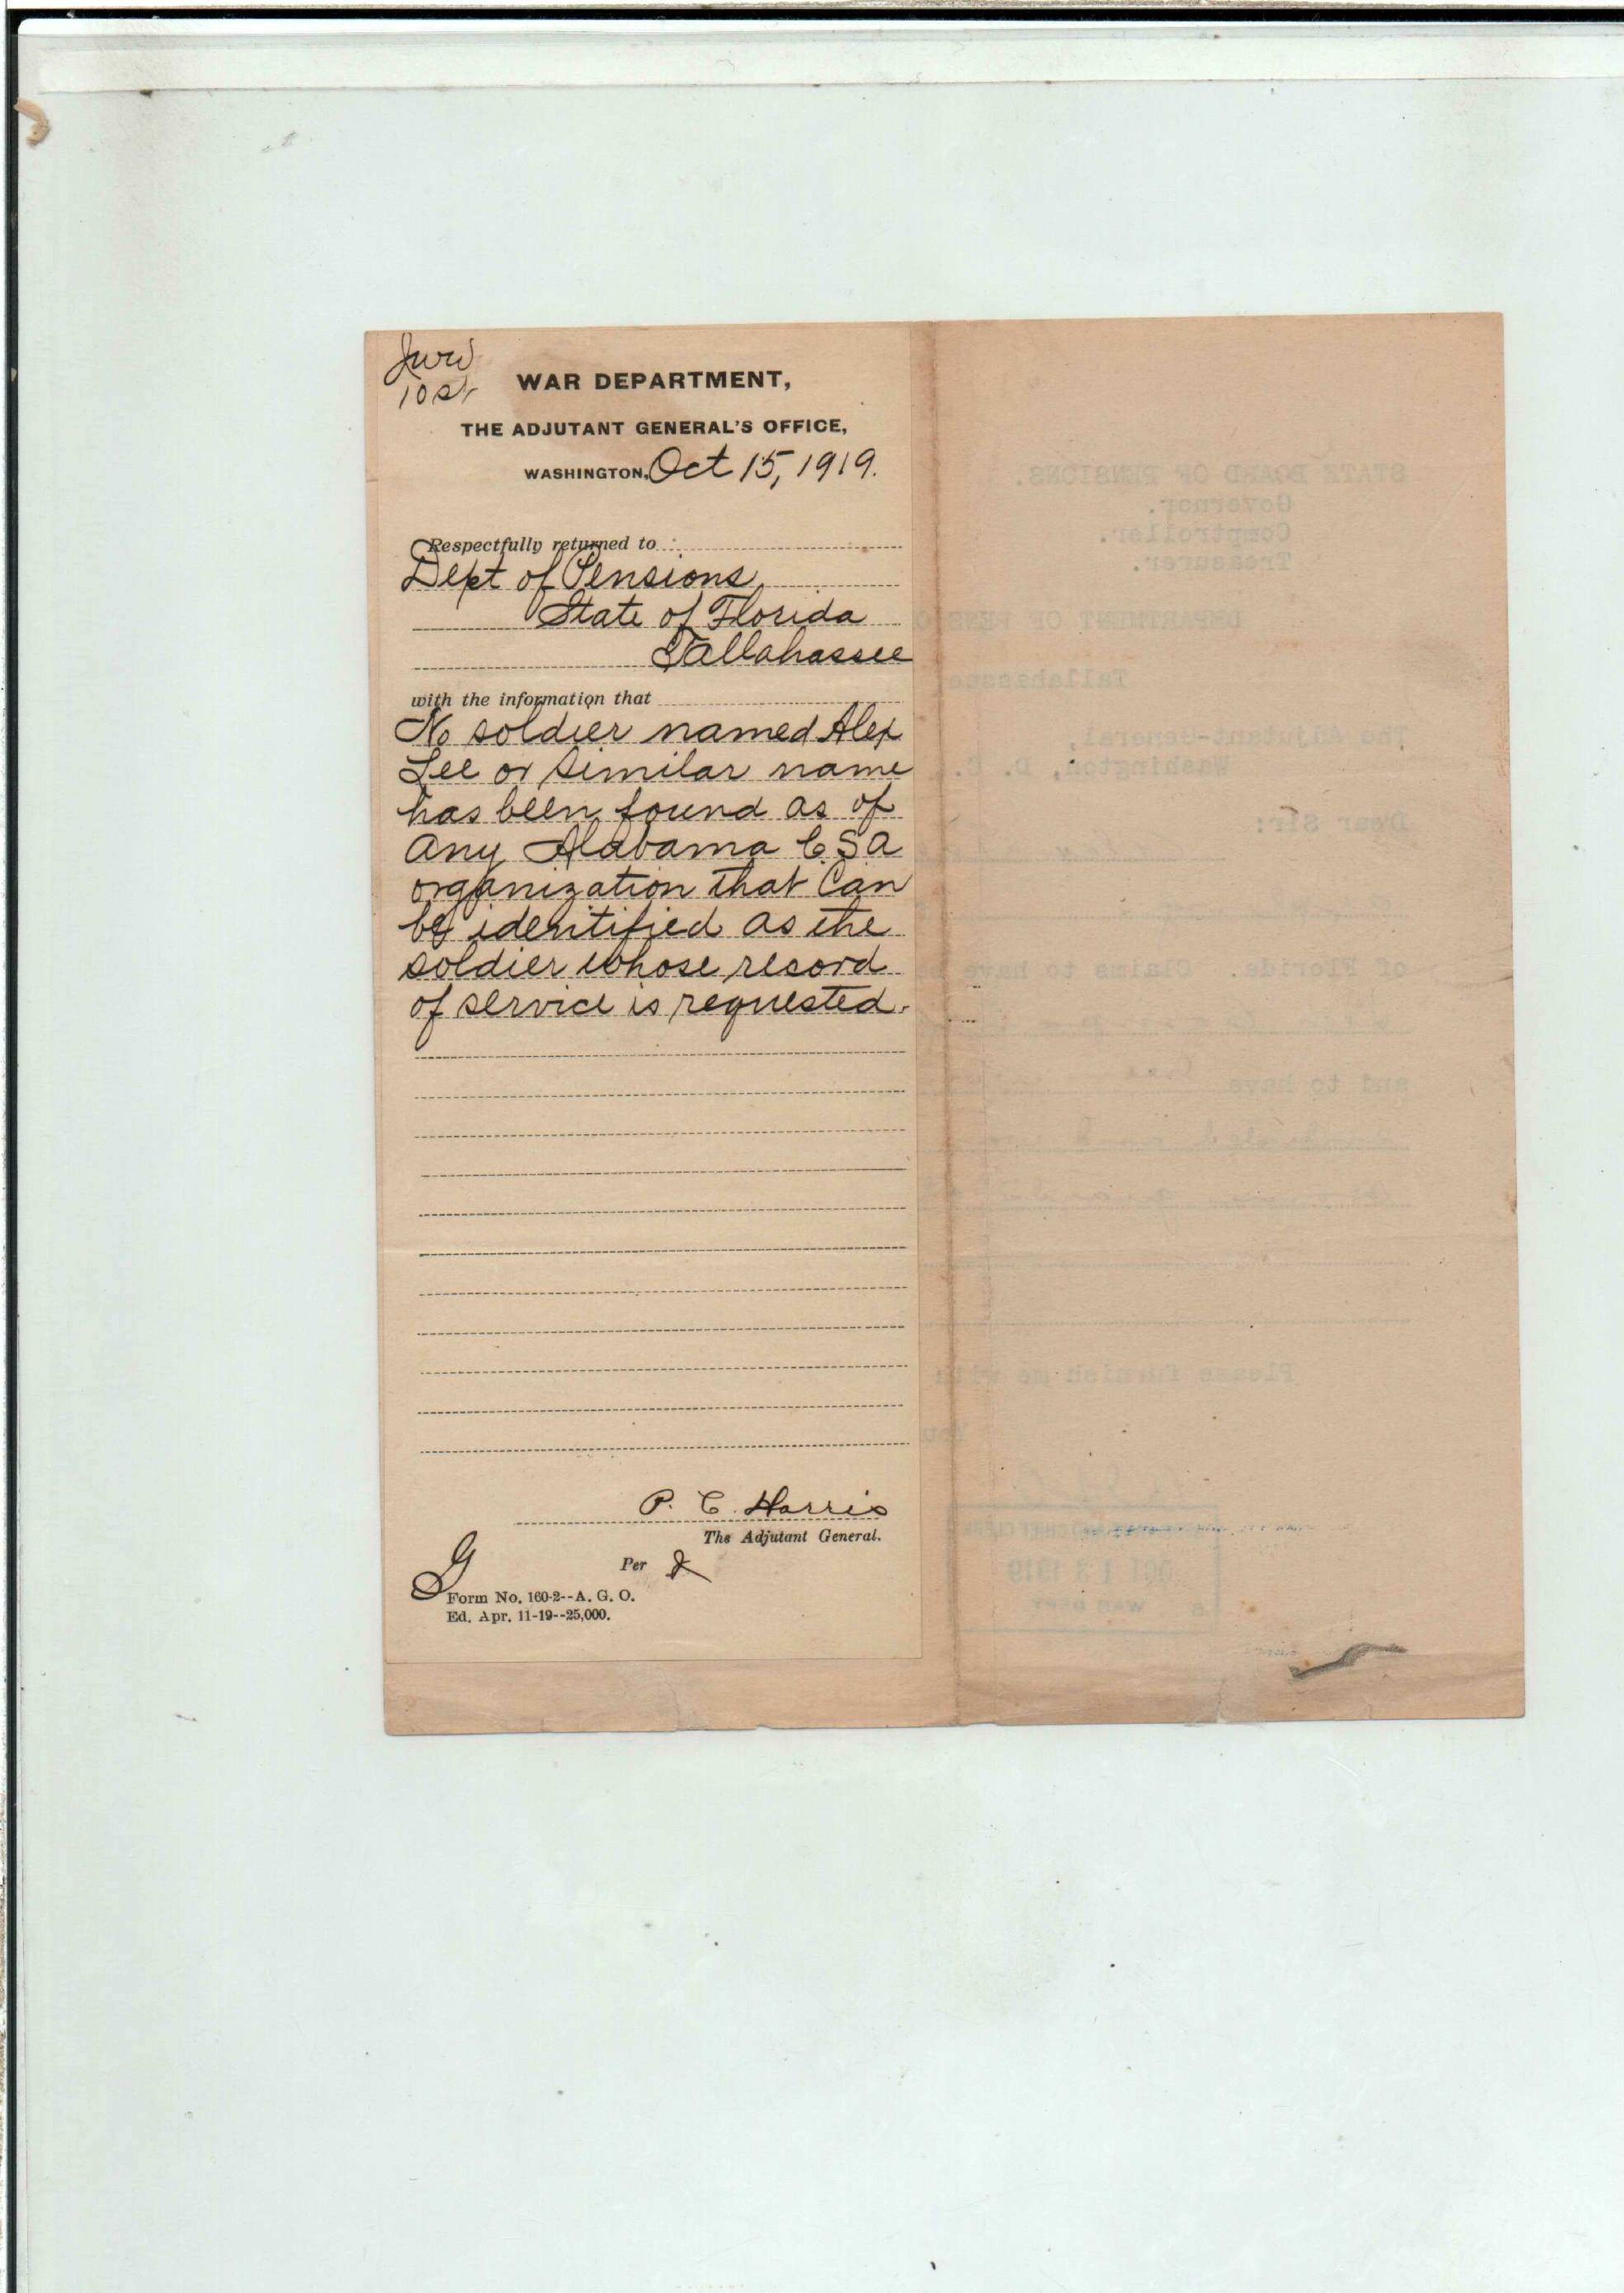 WAR DEPARTMENT,
THE ADJUTANT GENERAL'S OFFICE,
WASHINGTON, Oct 15, 1919.
Respectfully returned to
Dept of Pensions
State of Florida
Tallahassee
with the information that
No soldier named Alex
Lee or similar name
has been found as of
any Alabama C.S.A
organization that can
be identified as the
soldier whose record
of service is requested.
P. C. Harris
The Adjutant General.
Per
G
Form No. 160-2--A. G. O.
Ed. Apr. 11-19--25,000.
STATE BOARD OF PENSIONS.
Governor.
Comptroller.
Treasurer.
DEPARTMENT OF PENS
Tallahassee
The Adjutant-General,
Washington, D. C.
Dear Sir:
of Florida. Claims to have
and to have
Please furnish me with
You
OCT 13 1919
WAR DEPT